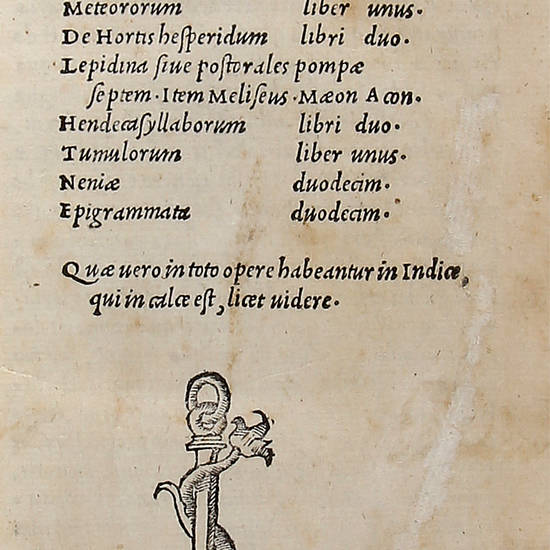 Meteororum liber unus.
De Hortis hesperidum libri duo.
Lepidina siue postorales pompæ
septem. Item Meliseus. Mæon Acon.
Hendecasyllaborum libri duo.
Tumulorum liber unus.
Neniæ duodecim.
Epigrammata duodecim.
Quæ uero in toto opere habeantur in Indice,
qui in calce est, licet uidere.